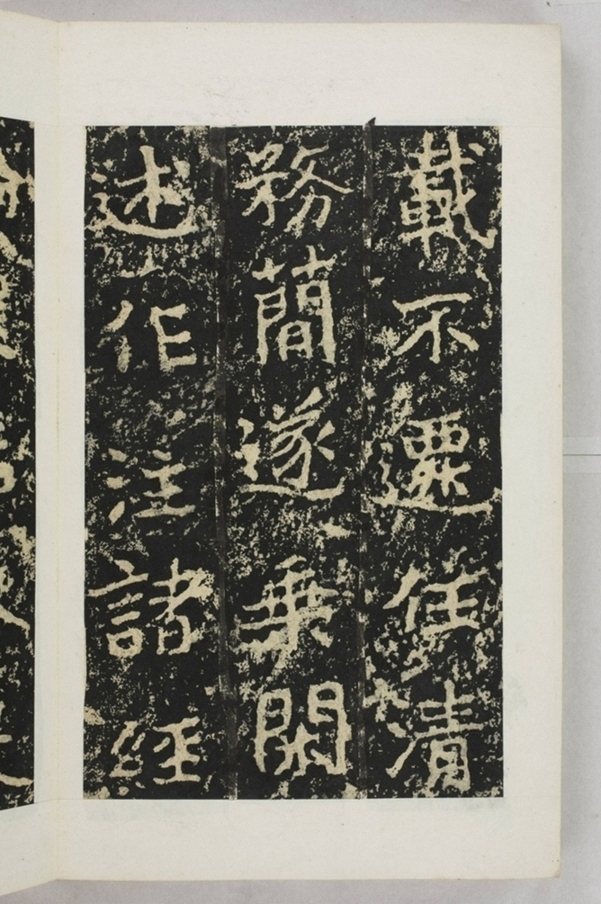 載不遷任清
務簡遂乗閑
述作注諸經